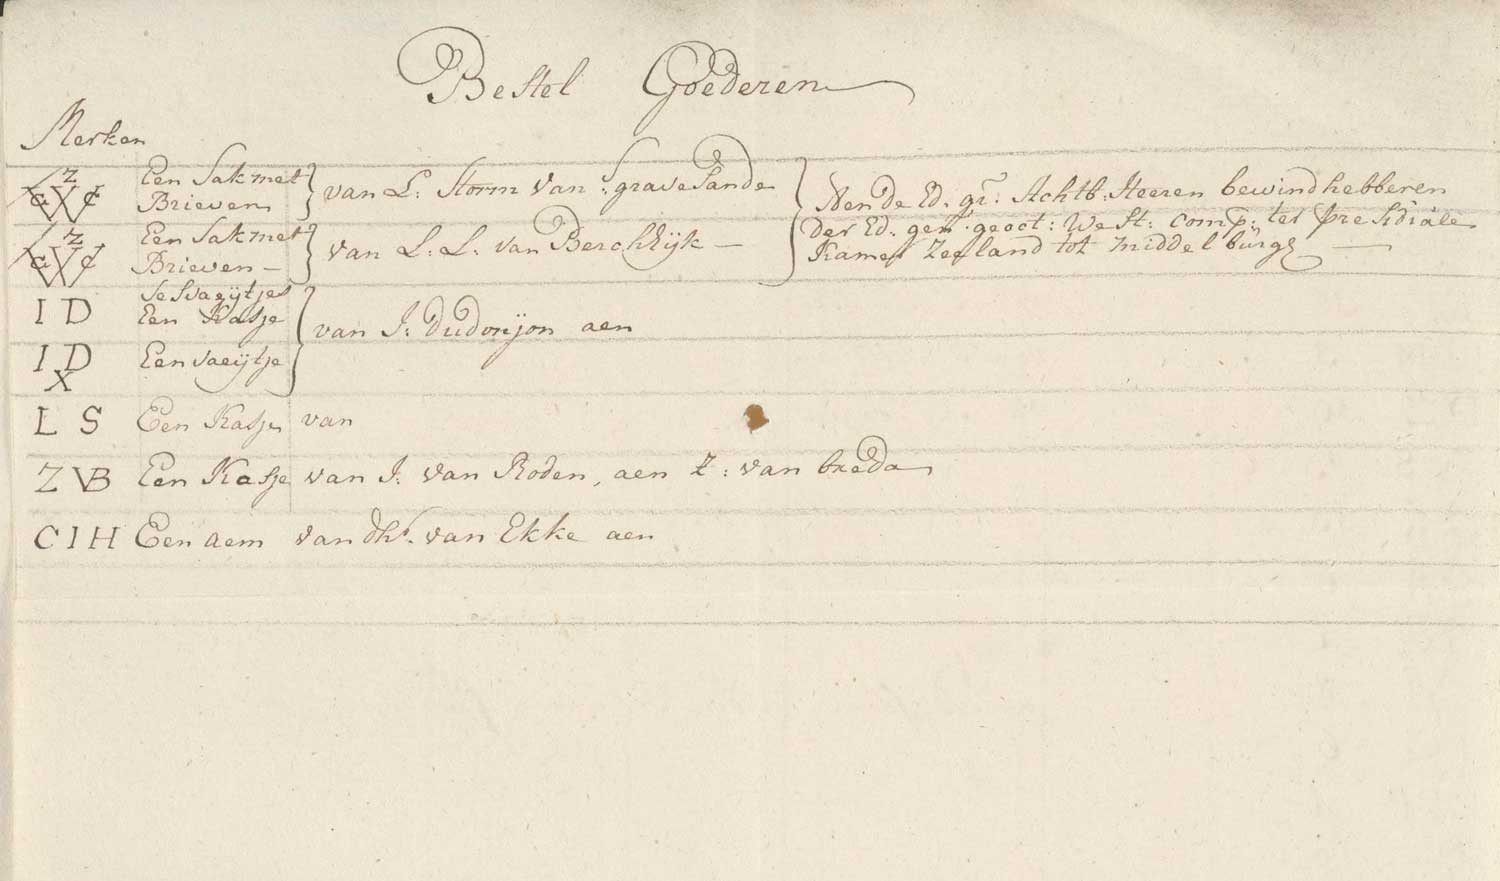 Bestel Goederen
Merken
Z GWC Een Sak met Brieven } van L: Storm van 'sgravesande
Z GWC Een Sak met Brieven } van L: L: van Berchëijk —
Aen de Ed. gr: Achtb: Heeren bewindhebberen
der Ed. geoct: West: Comp: ter presidiale
Kamer Zeeland tot middelburg —
I D Een Kasje
I D X Een vaeijtje } van J: dudonjon aen
L S Een Kasje van
Z VB Een Kasje van J. van Roden, aen Z: van breda
C I H Een aem van dhr. van Ekke aen